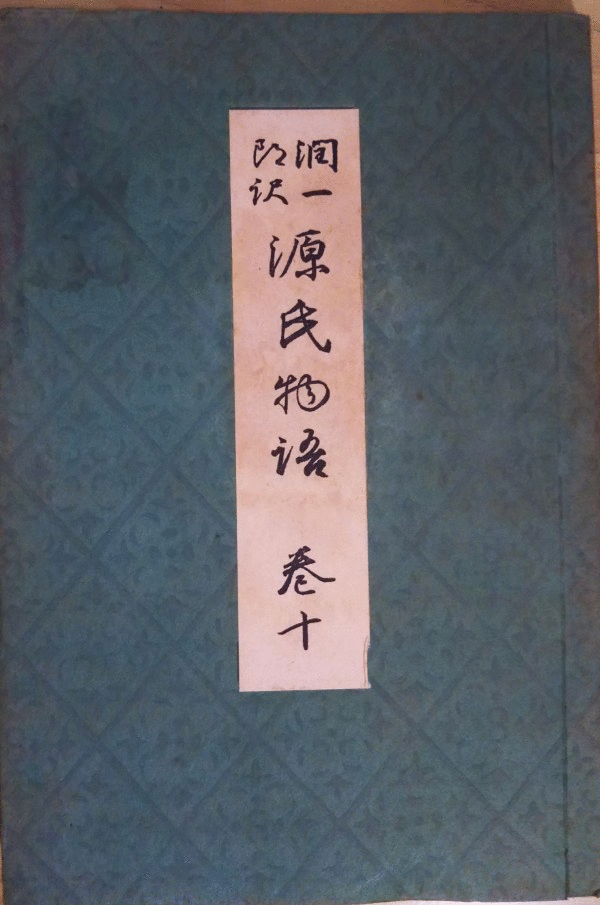 潤一
郎訳
源氏物語 巻十